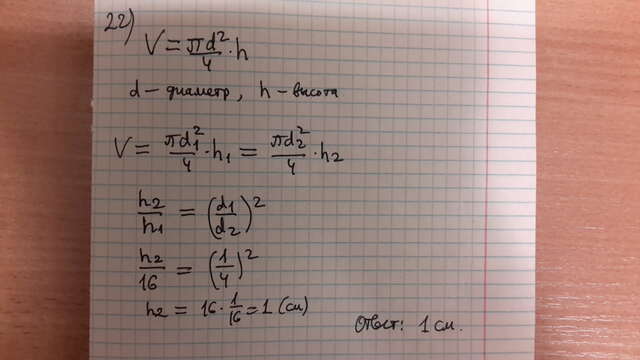 22)
V = πd²/4 · h
d – диаметр, h – высота
V = πd₁²/4 · h₁ = πd₂²/4 · h₂
h₂/h₁ = (d₁/d₂)²
h₂/16 = (1/4)²
h₂ = 16 · 1/16 = 1 (см)
Ответ: 1 см.